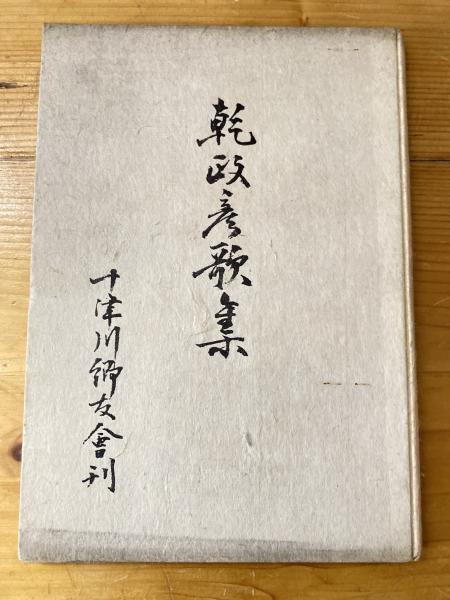 乾政彦歌集
十津川郷友會刊